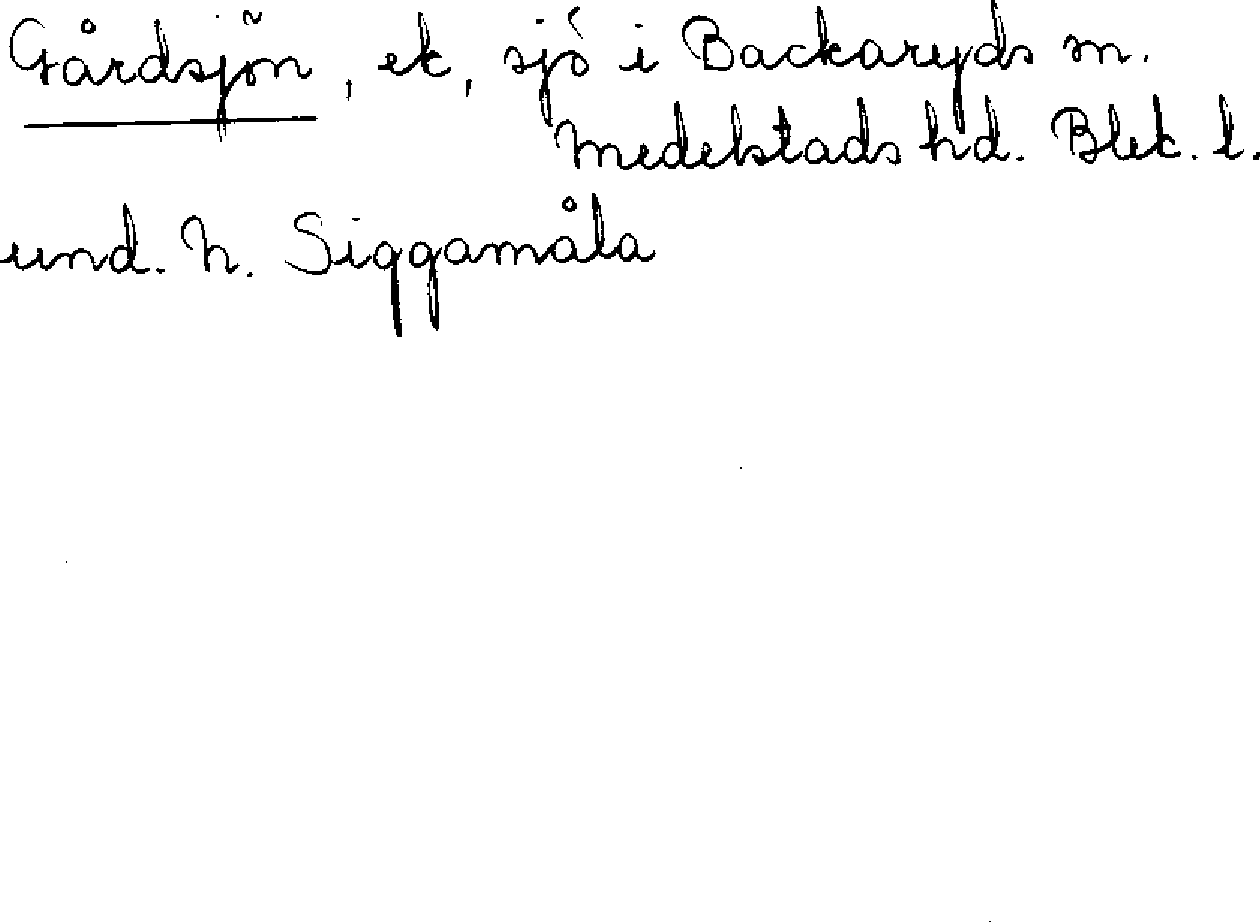 Gårdsjön, ek, sjö i Backaryds sn.
Medelstads hd. Blek. l.
und. N. Siggamåla